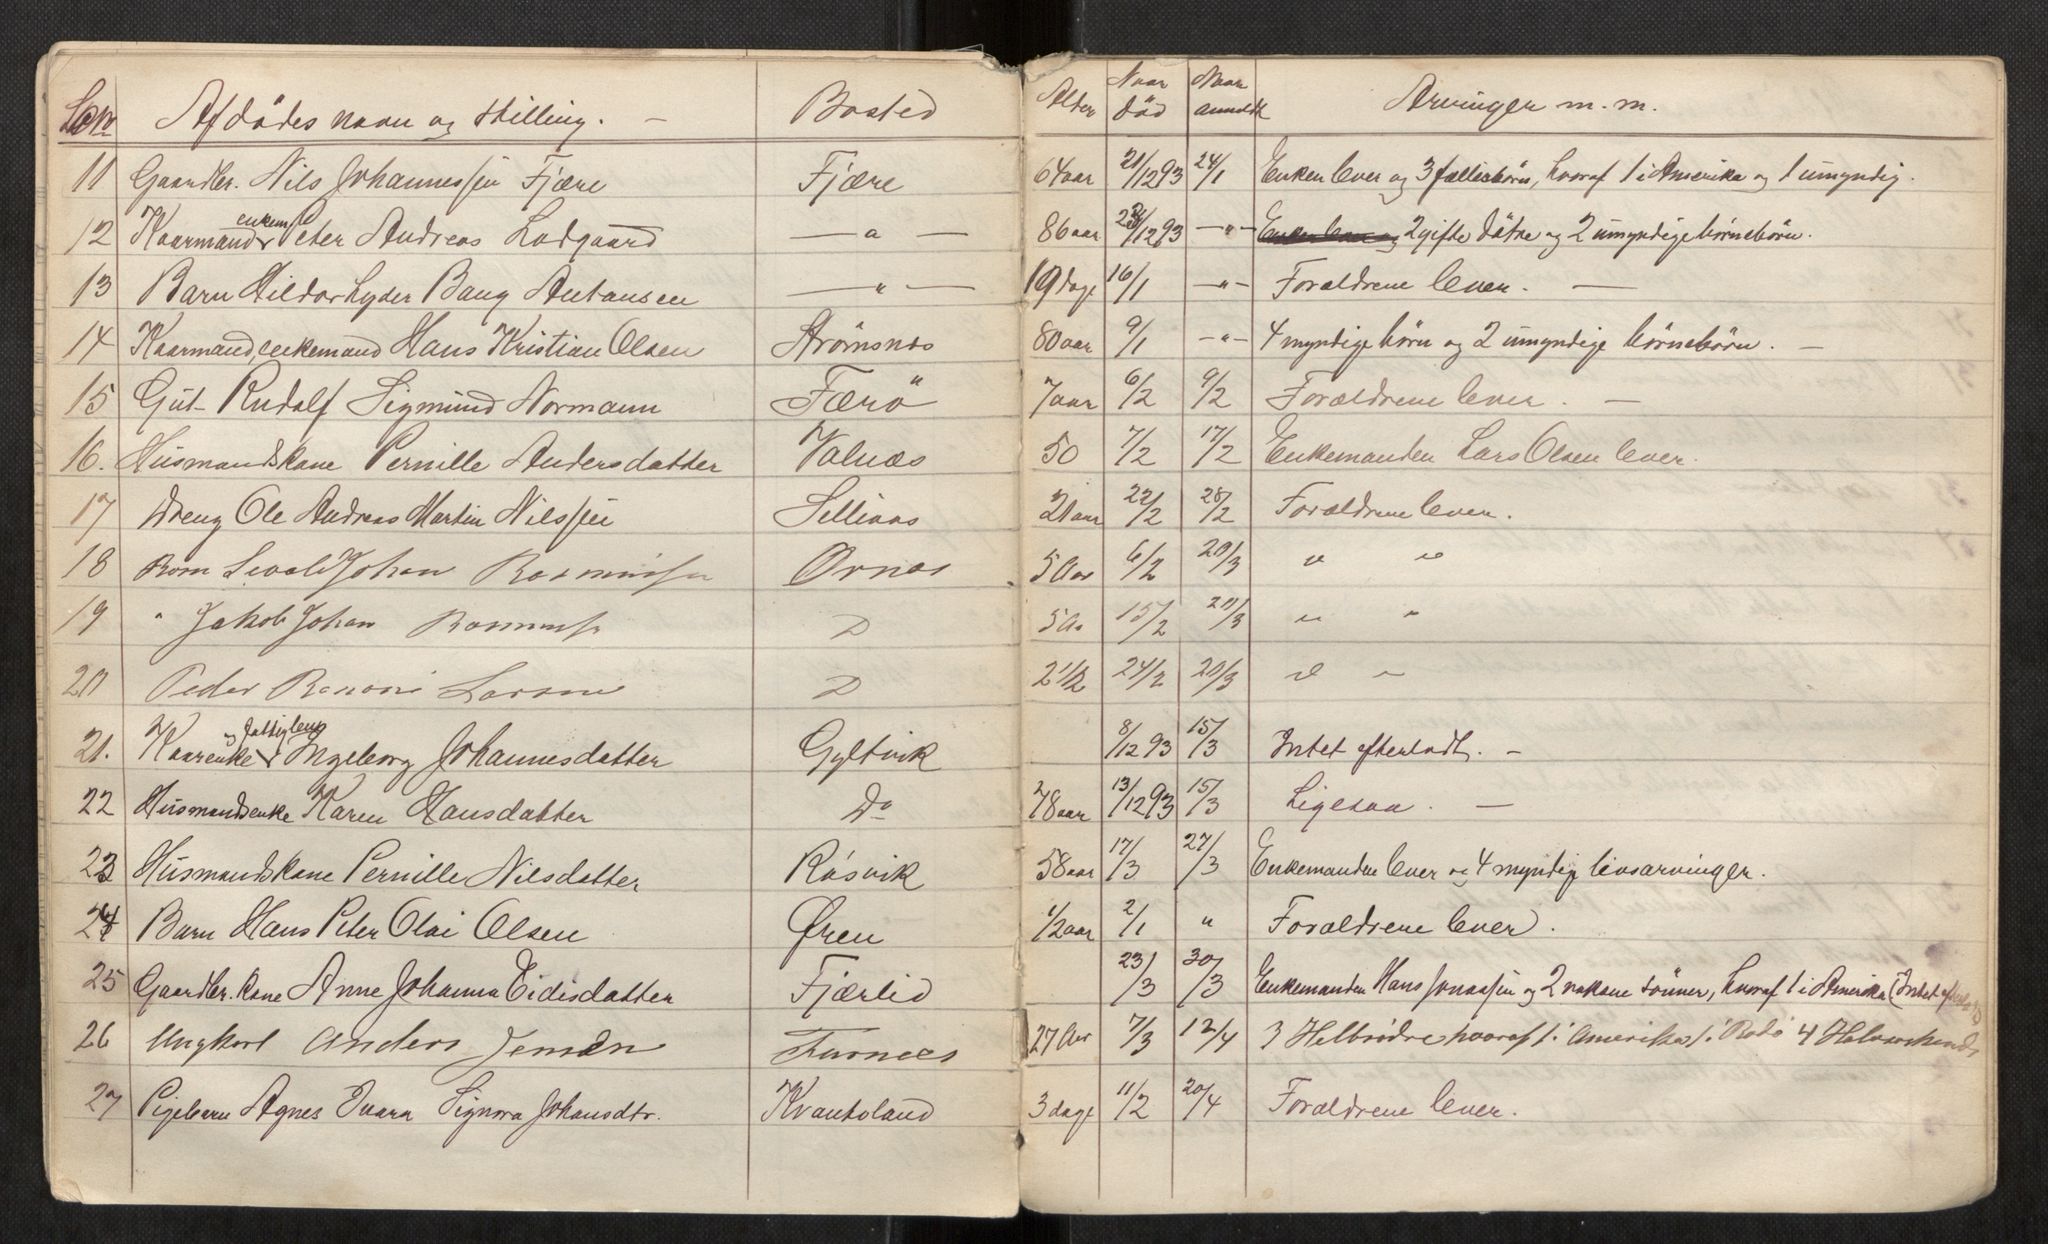 Lbn Afdødes navn og stilling. — Bosted Alder Naar död Naar anmeldt Arvinger m. m.
11 Gaardbr. Nils Johannessen Fjære Fjære 64 aar 21/12 93 24/1 Enken lever og 3 fællesbörn, hvoraf 1 i Amerika og 1 umyndig.
12 Kaarmand enkem. Peter Andreas Lodgaard — " — 86 aar 23/12 93 — " — Enken lever og 2 gifte dötre og 2 umyndige börnebörn.
13 Barn Hildor Lyder Bang Antonsen — " — 19 dage 16/1 — " — Forældrene lever. —
14 Kaarmand, enkemand Hans Kristian Olsen Strømsnes 80 aar 9/1 — " — 4 myndige börn og 2 umyndige börnebörn. —
15 Gut Rudolf Sigmund Normann Færö 7 aar 6/2 9/2 Forældrene lever. —
16. Husmandskone Pernille Andersdatter Valnæs 50 7/2 17/2 Enkemanden Lars Olsen lever.
17 Dreng Ole Andreas Martin Nilssen 21 aar 22/2 28/2 Forældrene lever.
18 Barn Johan Ørnes 5 Aar 6/2 20/3 " "
19 " Jakob Johan D 5 Aar 15/2 20/3 " "
20 Peder Larsen D 2 1/2 24/2 20/3 " "
21. Kaarenke og fattiglem Ingeborg Johannesdatter Gyltvik 8/12 93 15/3 Intet efterladt. —
22 Husmandsenke Karen Hansdatter Do 78 aar 13/12 93 15/3 Ligesaa. —
23 Husmandskone Pernille Nilsdatter Røsvik 58 aar 17/3 27/3 Enkemanden lever og 4 myndige livsarvinger.
24 Barn Hans Peter Olai Olsen Øren 1/2 aar 2/1 " Forældrene lever.
25 Gaardbr. kone Anne Johanna Eidisdatter Fjærlid 23/3 30/3 Enkemanden Hans Jonassen og 2 voksne sønner, hvoraf 1 i Amerika (Intet efterladt)
26 Ungkarl Anders Jensen Furnes 27 Aar 7/3 12/4 3 Helbrødre hvoraf 1 i Amerika 1 i Rødø 4
27 Pigebarn Agnes Ivara Signora Johansdtr. Kvantoland 3 dage 11/2 20/4 Forældrene lever.